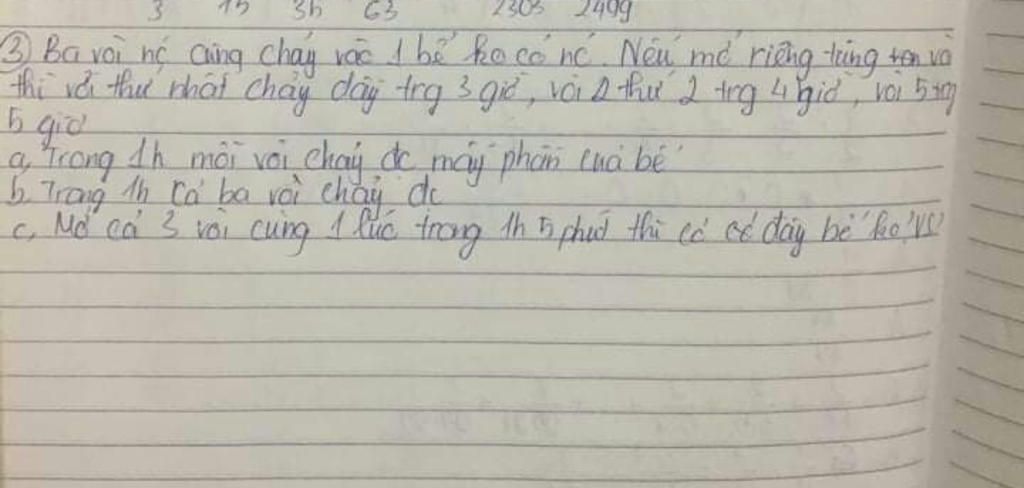 3 15 35 63 2303 2499
③ Ba vòi nc cùng chảy vào 1 bể ko có nc. Nếu mở riêng từng vò
thì vòi thứ nhất chảy đầy trg 3 giờ, vòi 2 thứ 2 trg 4 giờ, vòi 5 trg
5 giờ
a, Trong 1h mỗi vòi chảy đc mấy phần của bể
b, Trong 1h cả ba vòi chảy đc
c, Mở cả 3 vòi cùng 1 lúc trong 1h 5 phút thì có có đầy bể ko, Vs